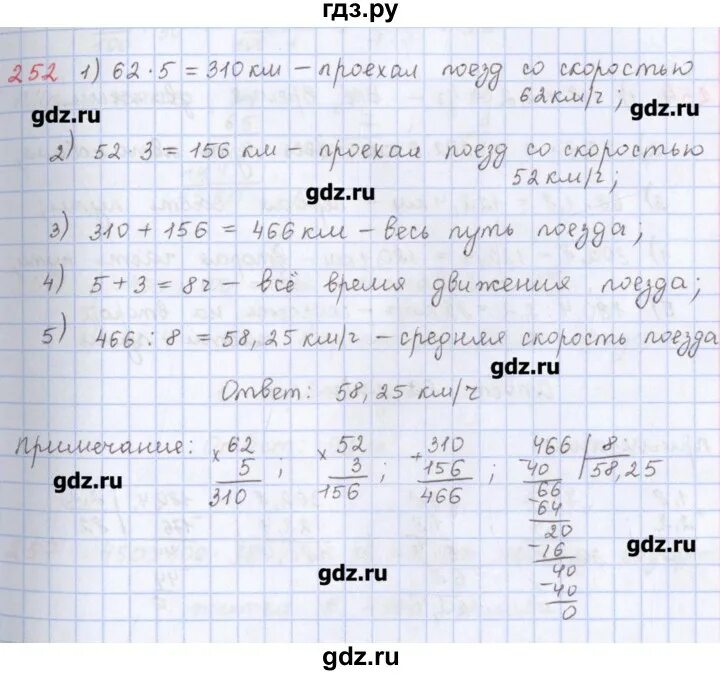 гдз.ру
252 1) 62 · 5 = 310 км – проехал поезд со скоростью
62 км/ч;
gdz.ru
2) 52 · 3 = 156 км – проехал поезд со скоростью
52 км/ч;
gdz.ru
3) 310 + 156 = 466 км – весь путь поезда;
4) 5 + 3 = 8 ч – всё время движения поезда;
5) 466 : 8 = 58,25 км/ч – средняя скорость поезда
gdz.ru
Ответ: 58,25 км/ч
Примечание: × 62 ; × 52 ; + 310 ; 466 | 8
5 3 156 - 40 58,25
310 156 466 66
gdz.ru
- 64
20
- 16
gdz.ru
40
gdz.ru
- 40
0
gdz.ru